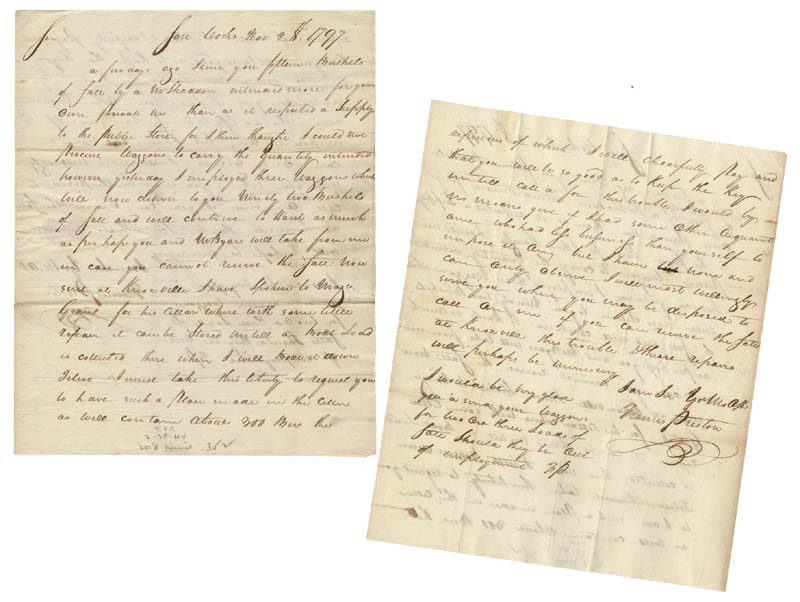 Sir Salt Works Nov 28th 1797
a few days ago I sent you fifteen Bushels
of Salt by a Mr Shaddon intended more for your
Own private use than as it respected a Supply
to the Public Store for I then thought I could not
Procure Waggons to carry the quantity intended
however yesterday I employed three Waggons which
will now deliver to you Ninety two Bushels
of Salt and will continue to Haul as much
as perhaps you and Mr Byar will take from me
in case you cannot receive the Salt now
sent at Knoxville I have spoken to Major
Grant for his Cellar where with some little
repair it can be Stored untill a Boat Load
is collected there when I will Boat it down
I must take the liberty to request you
to have such a place made in the Cellar
as will contain about 300 Bus the
2-28-44
expences of which I will chearfully Pay and
that you will be so good as to Keep the Key
untill call'd for this trouble I would by
no means give if I had some other acquaint
ance who had less business than yourself to
impose it on, but I have none and
can only observe I will most willingly
serve you when you may be disposed to
call on me. if you can receive the Salt
at Knoxville this trouble & these repairs
will perhaps be unnecessary I am Sir Yr Mo
Francis Preston
I would be very glad
you'd send your Waggons
for two or three Loads of
Salt should they be out
of employment FP